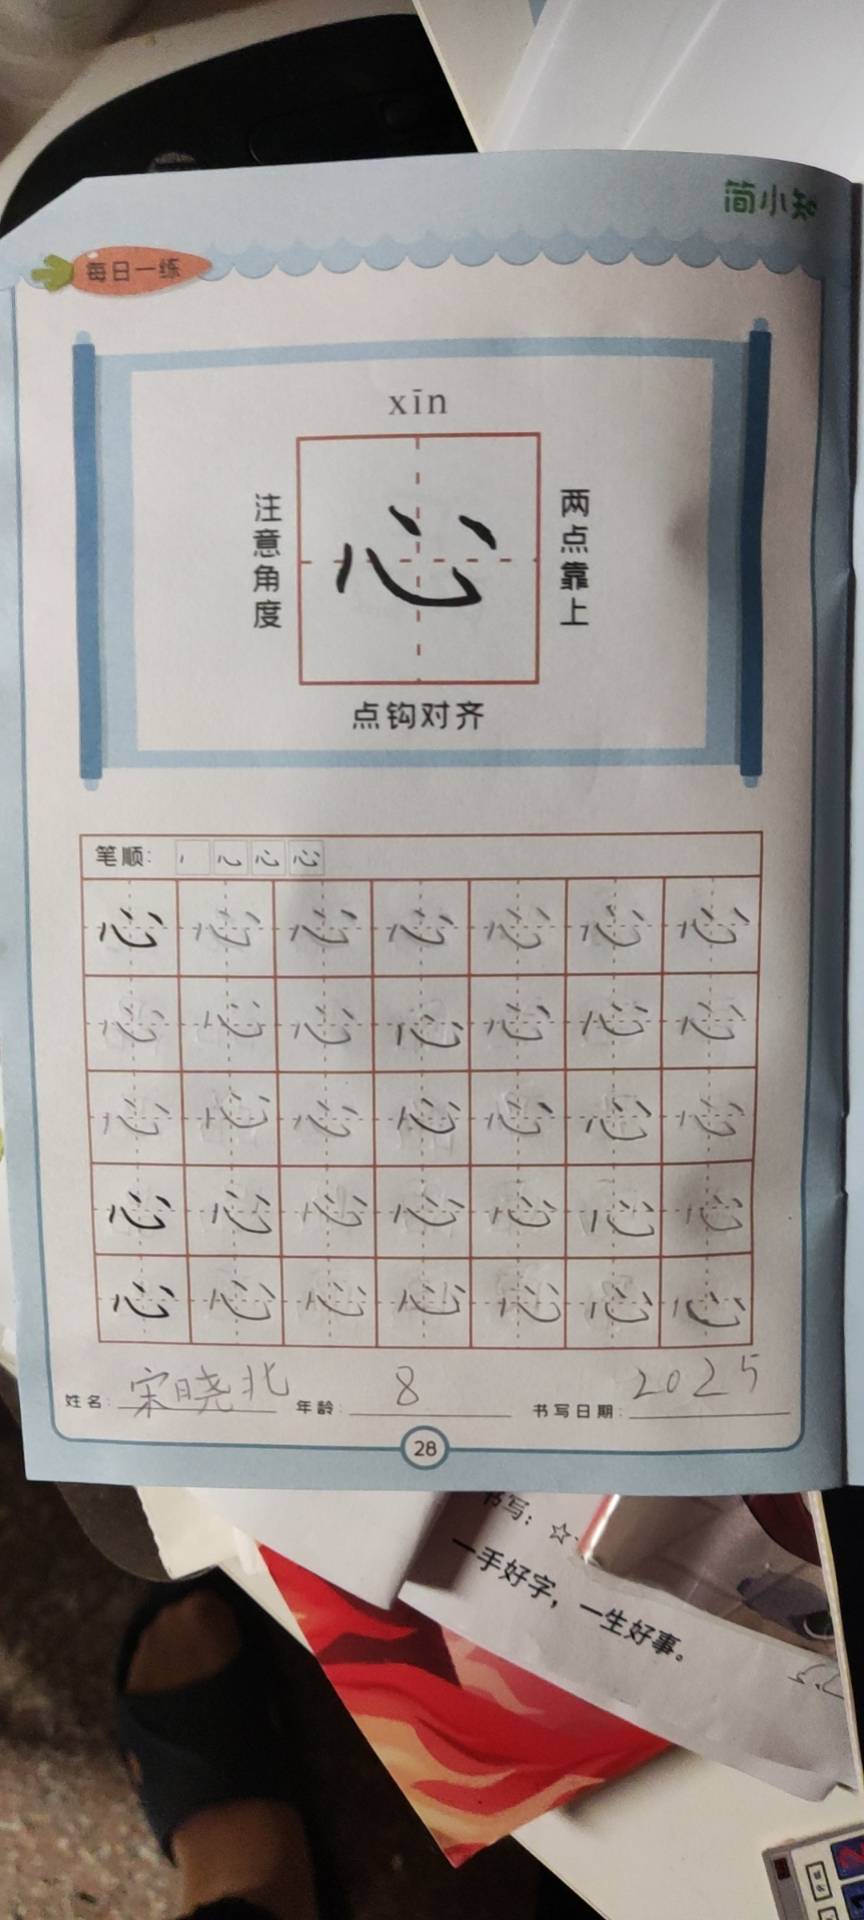 简小知
每日一练
xīn
注意角度
心
两点靠上
点钩对齐
笔顺：
心 心 心 心 心 心 心
心 心 心 心 心 心 心
心 心 心 心 心 心 心
心 心 心 心 心 心 心
心 心 心 心 心 心 心
姓名：宋晓北 年龄：8 书写日期：2025
28
书写：☆
一手好字，一生好事。